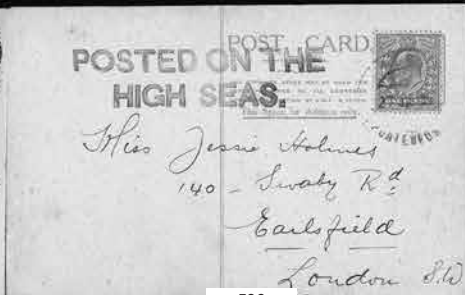 POST CARD
POSTED ON THE
HIGH SEAS.
Miss Jessie Holmes
140 - Swaby Rd
Earlsfield
London S.W